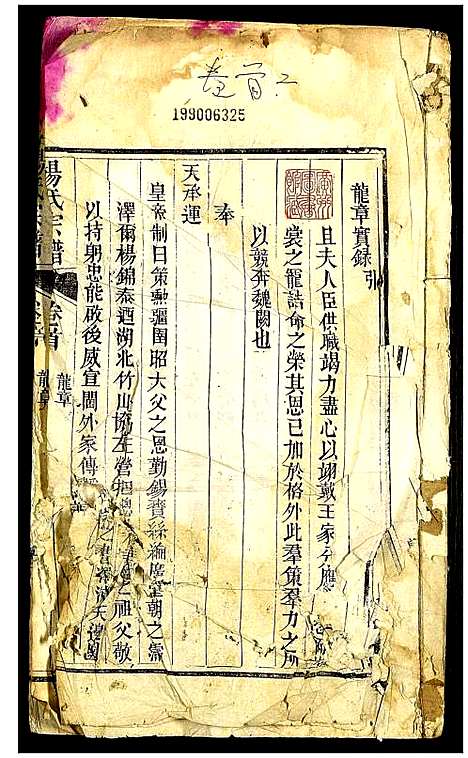 卷首2
199006325
龍章實錄 引
且夫人臣供職竭力盡心以翊戴王家分應
裳之寵誥命之榮其恩已加於格外此羣策羣力之所
以競奔魏闕也
奉
天承運
皇帝制曰策勳疆圉昭大父之恩勤錫賚絲綸廣皇朝之
澤爾楊錦泰迺湖北竹山協左營
祖父敬
以持躬忠能啟後威宣閫外家傳
天
楊氏宗譜
卷首
龍章
龍章